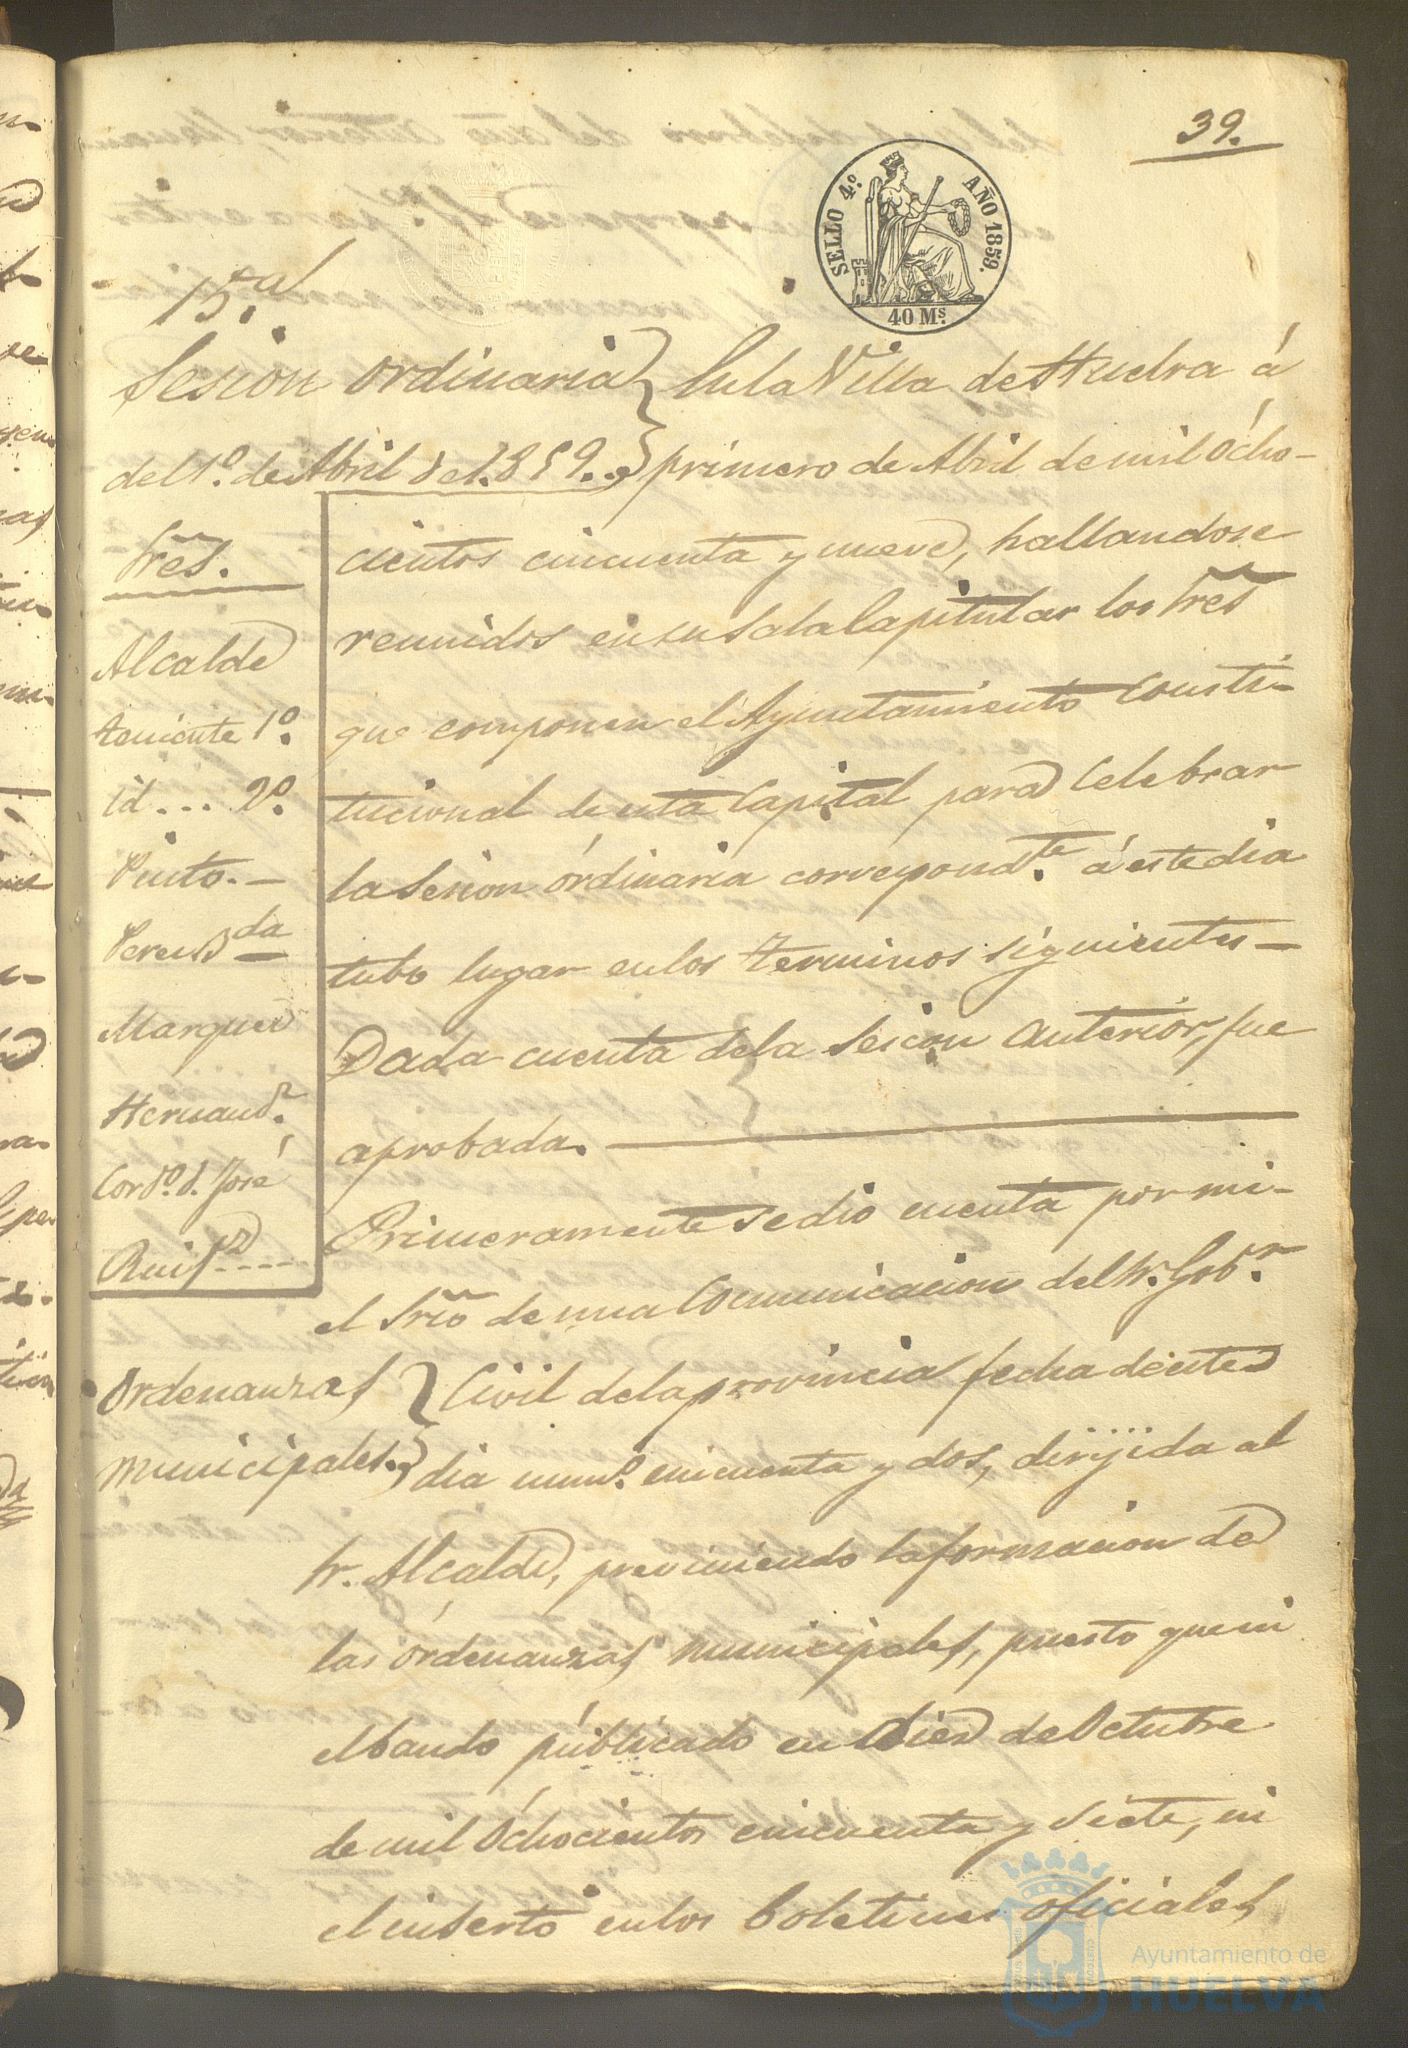 39.
SELLO 4.º AÑO 1859.
40 Ms.
15.ª
Sesion ordinaria
del 1.º de Abril del 1859.
Sres.
Alcalde
teniente 1.º
id... 2.º
Pinto.
Marquez
Hernandz.
Cordo. d. José
Ruiz
En la Villa de Huelva á
primero de Abril de mil ócho-
cientos cincuenta y nueve, hallandose
reunidos en su sala Capitular los Sres
que componen el Ayuntamiento Consti-
tucional de esta Capital para celebrar
la sesion órdinaria correspondte. á este dia
tubo lugar en los terminos siguientes
Dada cuenta de la sesion anterior, fue
aprobada.
Primeramente se dio cuenta por mi
el Srio de una Comunicacion del Sr. Gobr.
Ordenanzas
municipales.
Civil de la provincia fecha de este
dia numo. cincuenta y dos, dirijida al
Sr. Alcalde, previniendo la formacion de
las órdenanzas municipales, puesto que ni
el bando públicado en dies de Octubre
de mil óchocientos cincuenta y siete, ni
el inserto en los boletines oficiales
Ayuntamiento de
HUELVA